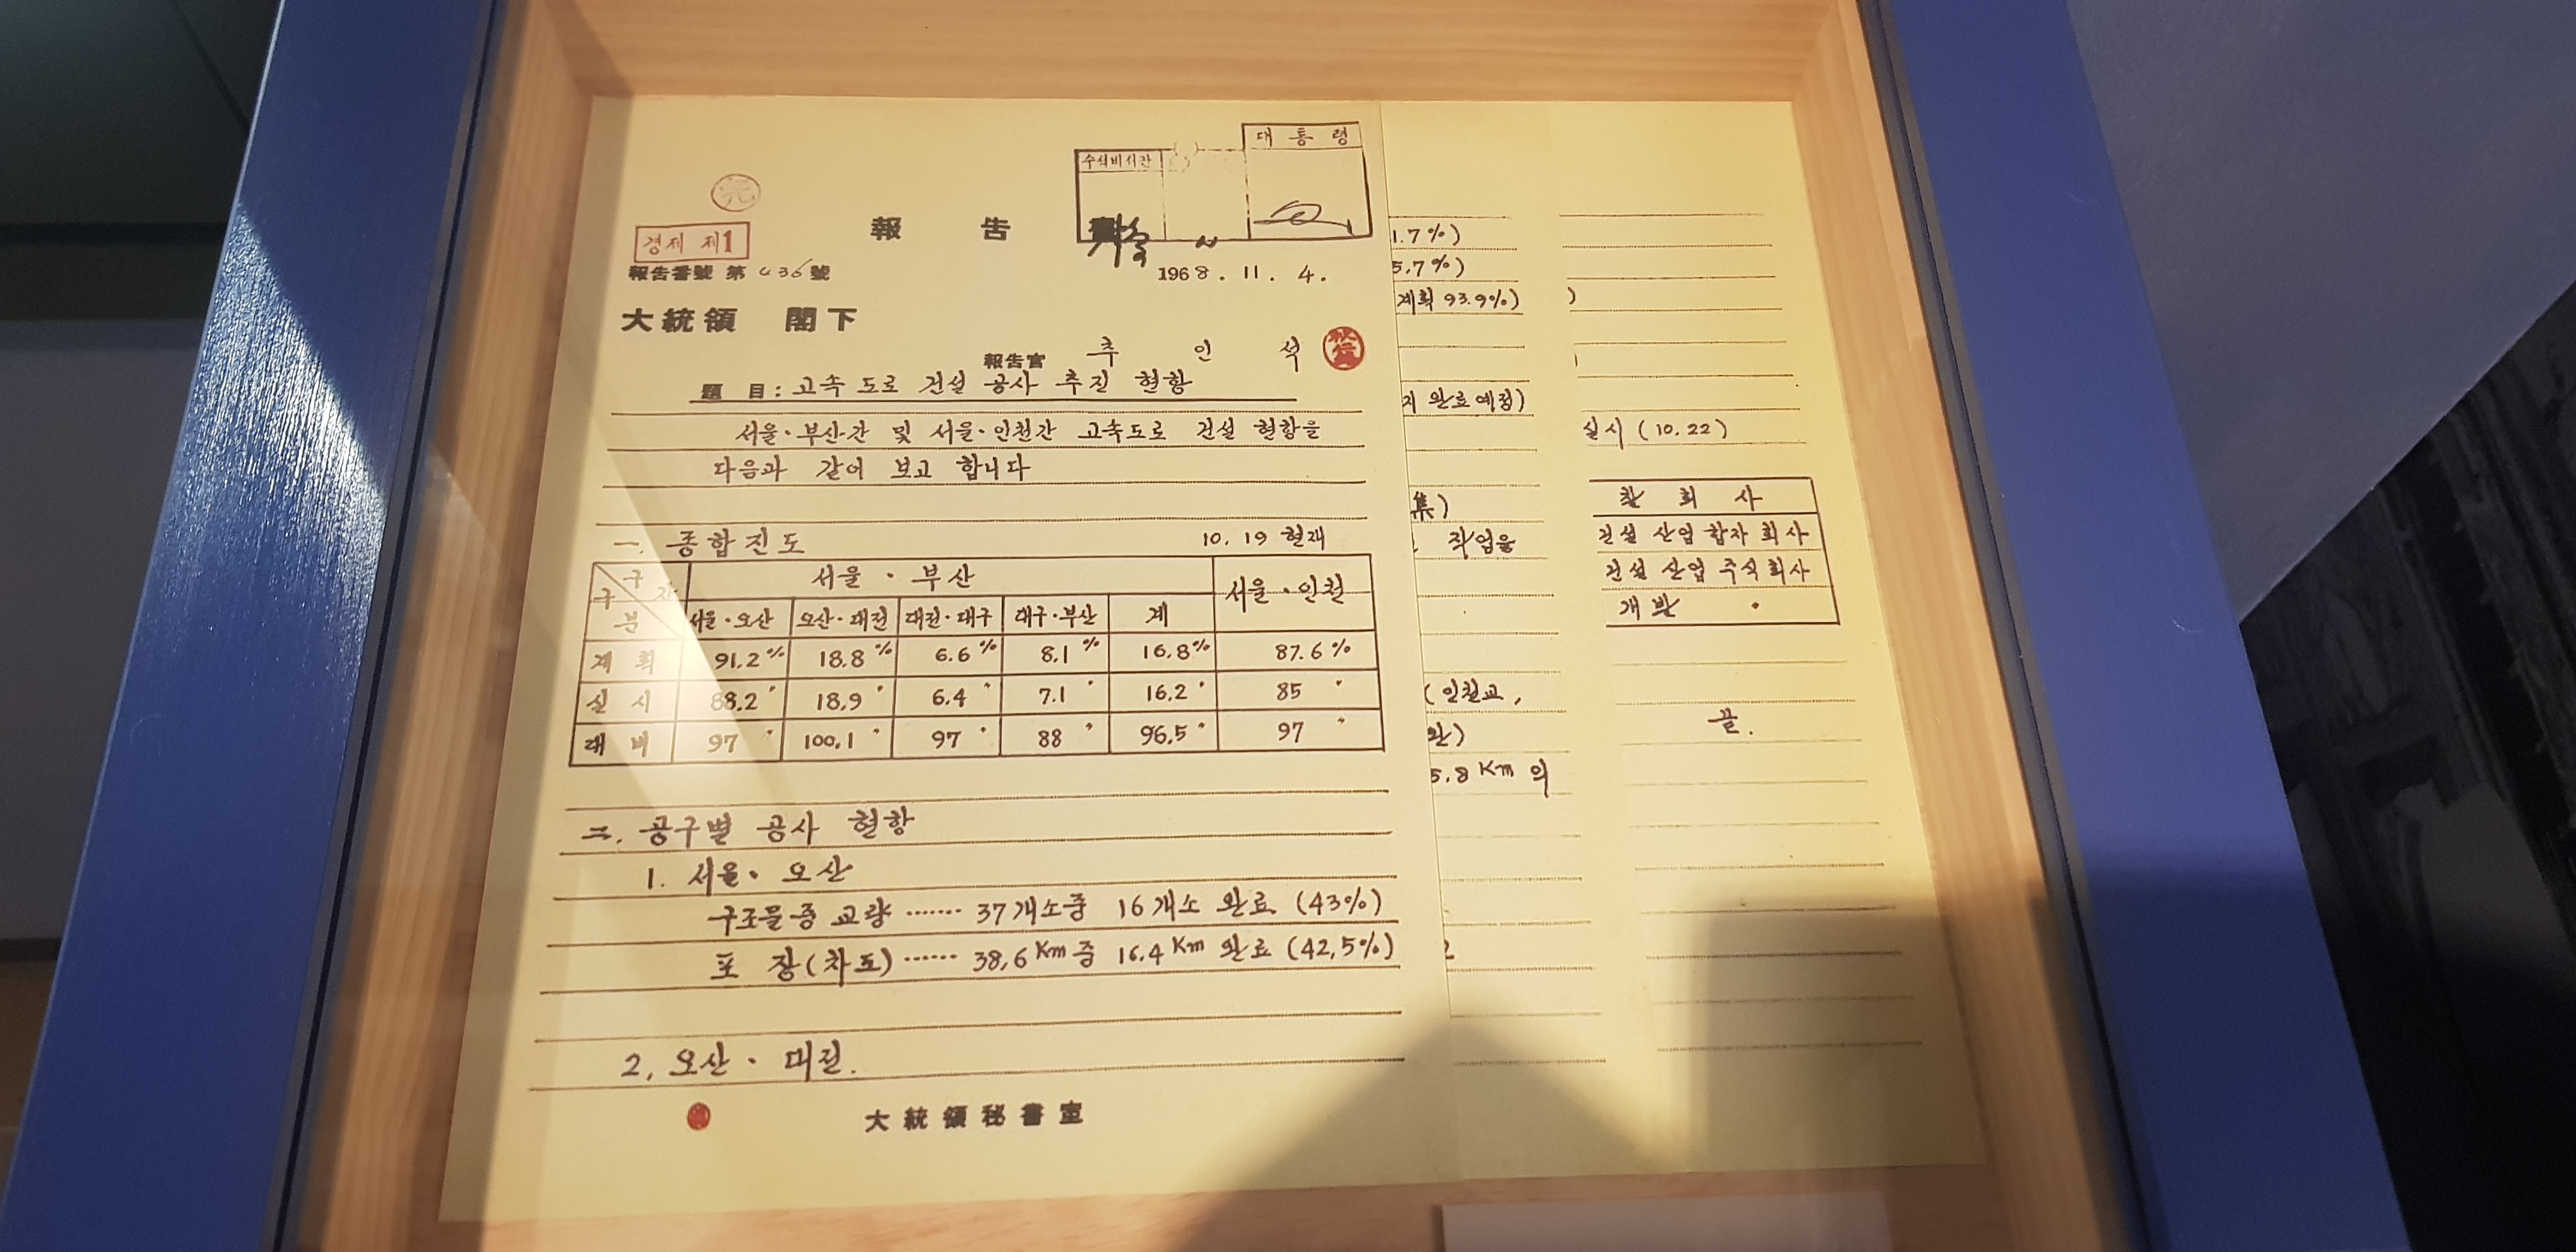 대통령
수석비서관
報告
경제 제1
報告番號 第 436 號
1968. 11. 4.
大統領 閣下
報告官 추 인 석
題目: 고속도로 건설 공사 추진 현황
서울·부산간 및 서울·인천간 고속도로 건설 현황을
다음과 같이 보고 합니다
一. 종합진도 10. 19 현재
구간 서울·부산 서울·인천
구분 서울·오산 오산·대전 대전·대구 대구·부산 계
계획 91.2% 18.8% 6.6% 8.1% 16.8% 87.6%
실시 88.2〃 18.9〃 6.4〃 7.1〃 16.2〃 85〃
대비 97〃 100.1〃 97〃 88〃 96.5〃 97〃
二. 공구별 공사 현황
1. 서울·오산
구조물중 교량 ······· 37개소중 16개소 완료 (43%)
포 장(차도) ······ 38,6Km중 16.4Km 완료 (42,5%)
2, 오산·대전.
大統領秘書室
1.7%)
5,7%)
계획 93.9%)
지 완료예정)
集)
작업을
(인천교,
완)
5,8Km의
)
실시 (10.22)
찰 회 사
건설 산업 합자 회사
건설 산업 주식회사
개발 〃
끝.